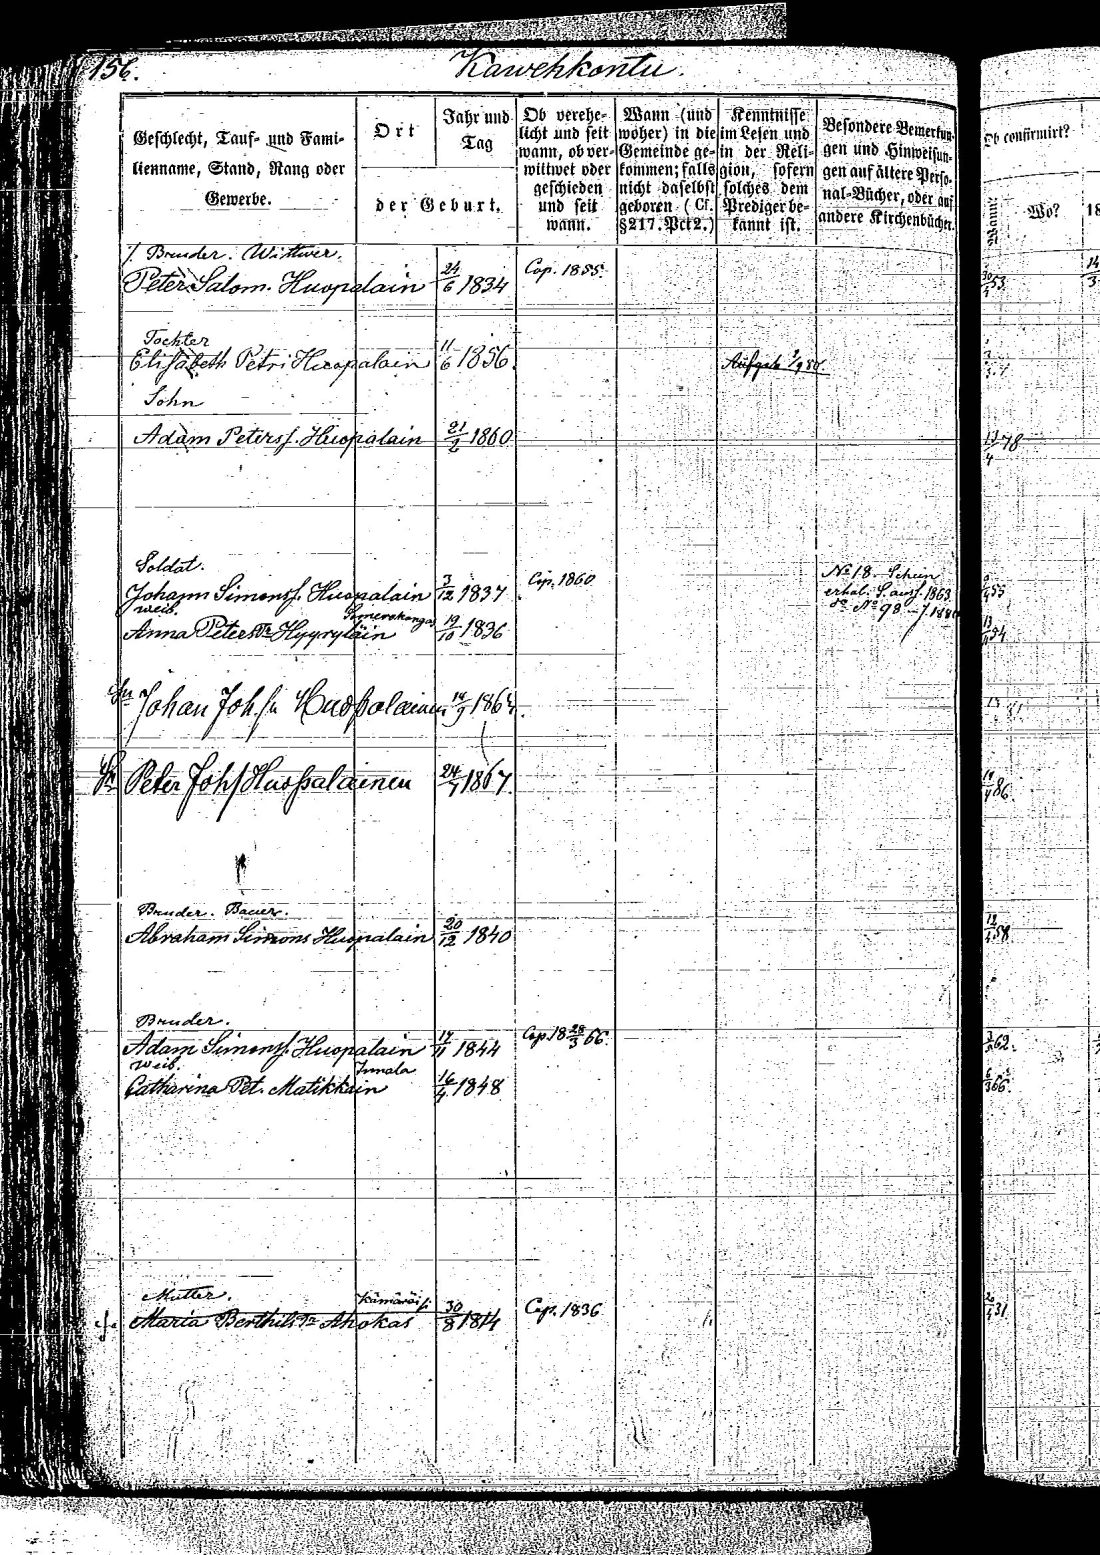 156.
Kawehkontu.
Geschlecht, Tauf- und Fami-
lienname, Stand, Rang oder
Gewerbe.
Ort
Jahr und
Tag
der Geburt.
Ob verehe-
licht und seit
wann, ob ver-
wittwet oder
geschieden
und seit
wann.
Wann (und
woher) in die
Gemeinde ge-
kommen; falls
nicht daselbst
geboren (Cf.
§217. Pct 2.)
Kenntnisse
im Lesen und
in der Reli-
gion, sofern
solches dem
Prediger be-
kannt ist.
Besondere Bemerkun-
gen und Hinweisun-
gen auf ältere Perso-
nal-Bücher, oder auf
andere Kirchenbücher.
Ob confirmirt?
Wann?
Wo?
18
Bruder. Wittwer.
Peter Salom. Huopalain 24/6 1834 Cop. 1855.
Tochter
Elisabeth Petri Huopalain 11/6 1856.
Sohn
Adam Peterss. Huopalain 21/2 1860 78
Soldat.
Johann Simonss. Huopalain 3/12 1837 Cop. 1860 No 18. Schein
erhal. 1863
Weib.
Anna Peters Tr Hyyryläin 19/10 1836 No 98
Johan Joh. sn Huospalainen 14/9 1864.
Peter Johs Huospalainen 24/7 1867. 86.
Bruder. Bauer.
Abraham Simons Huopalain 20/12 1840 58
Bruder.
Adam Simonss. Huopalain 17/11 1844 Cop. 18 28/3 66. 62.
Weib. Innala
Catharina Pet. Matikkain 16/4 1848 66
Mutter.
Maria Berthils Tr Ahokas 30/8 1814 Cop. 1836 31